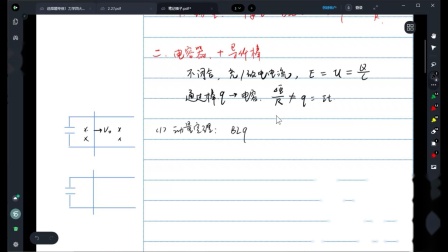 2.20.pdf
二. 电容器 + 导体棒
不闭合, 充/放电电流, E = U = Q/C
通过棒 q → 电容. ΔΦ/R ≠ q = It
x → V₀ x
x x
(1) 动量定理: BLq